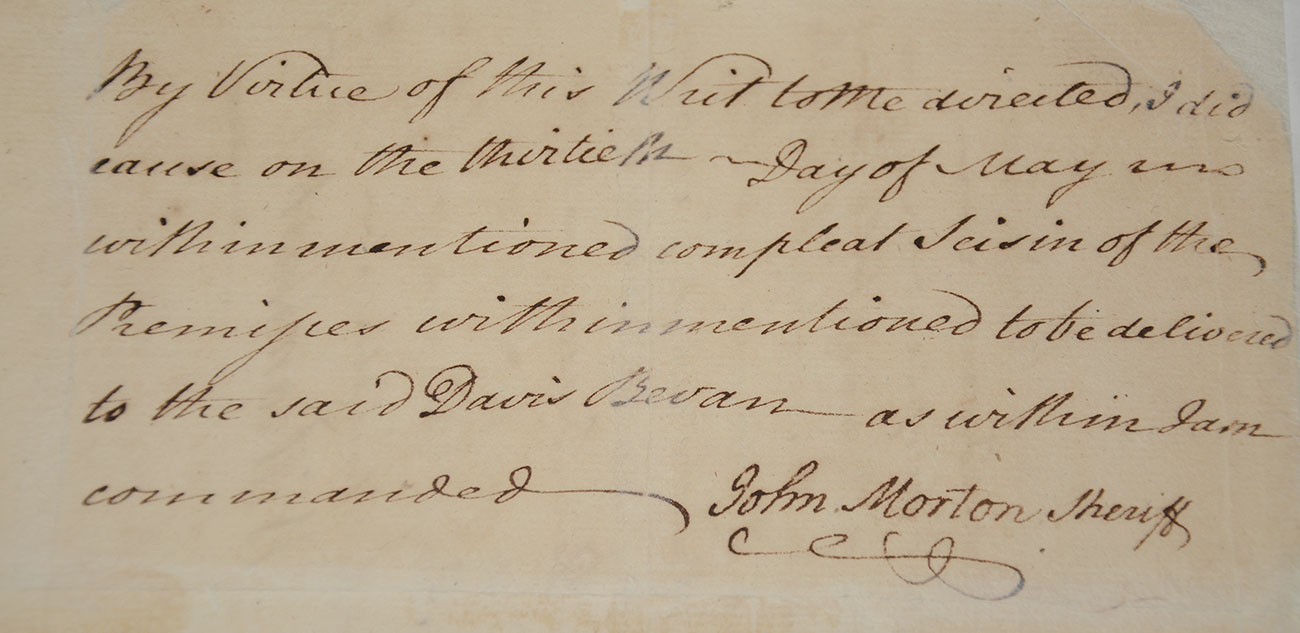 By Virtue of this Writ to Me directed, I did
cause on the thirtieth Day of May in
within mentioned compleat Seisin of the
Premises within mentioned to be delivered
to the said Davis Bevan as within I am
commanded John Morton Sheriff